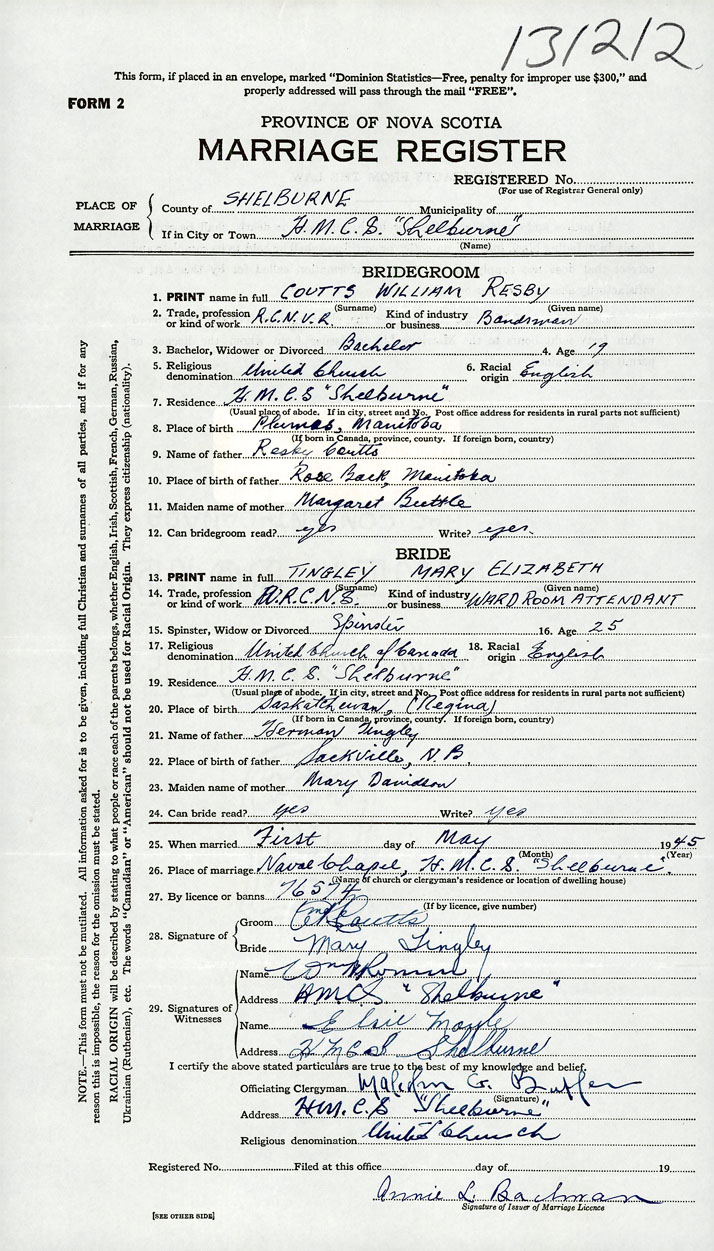 131212
This form, if placed in an envelope, marked "Dominion Statistics—Free, penalty for improper use $300," and
properly addressed will pass through the mail "FREE".
FORM 2
PROVINCE OF NOVA SCOTIA
MARRIAGE REGISTER
REGISTERED No.
(For use of Registrar General only)
PLACE OF MARRIAGE
County of SHELBURNE Municipality of
If in City or Town H.M.C.S. "Shelburne"
(Name)
BRIDEGROOM
1. PRINT name in full COUTTS WILLIAM RESBY
(Surname) (Given name)
2. Trade, profession or kind of work R.C.N.V.R. Kind of industry or business Bandsman
3. Bachelor, Widower or Divorced Bachelor 4. Age 19
5. Religious denomination United Church 6. Racial origin English
7. Residence H.M.C.S "Shelburne"
(Usual place of abode. If in city, street and No. Post office address for residents in rural parts not sufficient)
8. Place of birth Plumas, Manitoba
(If born in Canada, province, county. If foreign born, country)
9. Name of father Resby Coutts
10. Place of birth of father Rose Back, Manitoba
11. Maiden name of mother Margaret
12. Can bridegroom read? yes Write? yes.
BRIDE
13. PRINT name in full TINGLEY MARY ELIZABETH
(Surname) (Given name)
14. Trade, profession or kind of work W.R.C.N.S. Kind of industry or business WARD ROOM ATTENDANT
15. Spinster, Widow or Divorced Spinster 16. Age 25
17. Religious denomination United Church of Canada 18. Racial origin English
19. Residence H.M.C.S. "Shelburne"
(Usual place of abode. If in city, street and No. Post office address for residents in rural parts not sufficient)
20. Place of birth Saskatchewan, (Regina)
(If born in Canada, province, county. If foreign born, country)
21. Name of father Herman Tingley
22. Place of birth of father Sackville, N.B.
23. Maiden name of mother Mary Davidson
24. Can bride read? yes Write? yes
25. When married First day of May 1945
(Month) (Year)
26. Place of marriage Naval Chapel, H.M.C.S. "Shelburne".
(Name of church or clergyman's residence or location of dwelling house)
27. By licence or banns 76574
(If by licence, give number)
28. Signature of
Groom Coutts
Bride Mary Tingley
29. Signatures of Witnesses
Name
Address HMCS "Shelburne"
Name Elsie
Address HMCS Shelburne
I certify the above stated particulars are true to the best of my knowledge and belief.
Officiating Clergyman Malcolm G. Butler
(Signature)
Address H.M.C.S "Shelburne"
Religious denomination United Church
Registered No. Filed at this office day of 19
Annie L. Bachman
Signature of Issuer of Marriage Licence
[SEE OTHER SIDE]
NOTE.—This form must not be mutilated. All information asked for is to be given, including full Christian and surnames of all parties, and if for any
reason this is impossible, the reason for the omission must be stated.
RACIAL ORIGIN will be described by stating to what people or race each of the parents belongs, whether English, Irish, Scottish, French, German, Russian,
Ukrainian (Ruthenian), etc. The words "Canadian" or "American" should not be used for Racial Origin. They express citizenship (nationality).